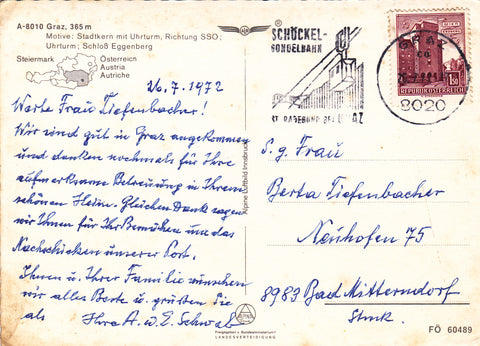 A-8010 Graz, 365 m
Motive: Stadtkern mit Uhrturm, Richtung SSO;
Uhrturm; Schloß Eggenberg
Steiermark
Österreich
Austria
Autriche
26.7.1972
Werte Frau Tiefenbacher!
Wir sind gut in Graz angekommen
und danken nochmals für Ihre
aufmerksame Betreuung in Ihrem
schönen Heim. Gleichen Dank sagen
wir Ihnen für Ihr Bemühen um das
Nachschicken unserer Post.
Ihnen u. Ihrer Familie wünschen
wir alles Beste u. grüßen Sie
als Ihre A. u. E. Schwab
Alpine Luftbild Innsbruck
SCHÖCKEL-
SONDELBAHN
ST. RADEGUND BEI GRAZ
GRAZ
8020
1.50
REPUBLIK ÖSTERREICH
S. g. Frau
Berta Tiefenbacher
Neuhofen 75
8983 Bad Mitterndorf
Stmk.
Freigegeben v. Bundesministerium f.
LANDESVERTEIDIGUNG
FÖ 60489